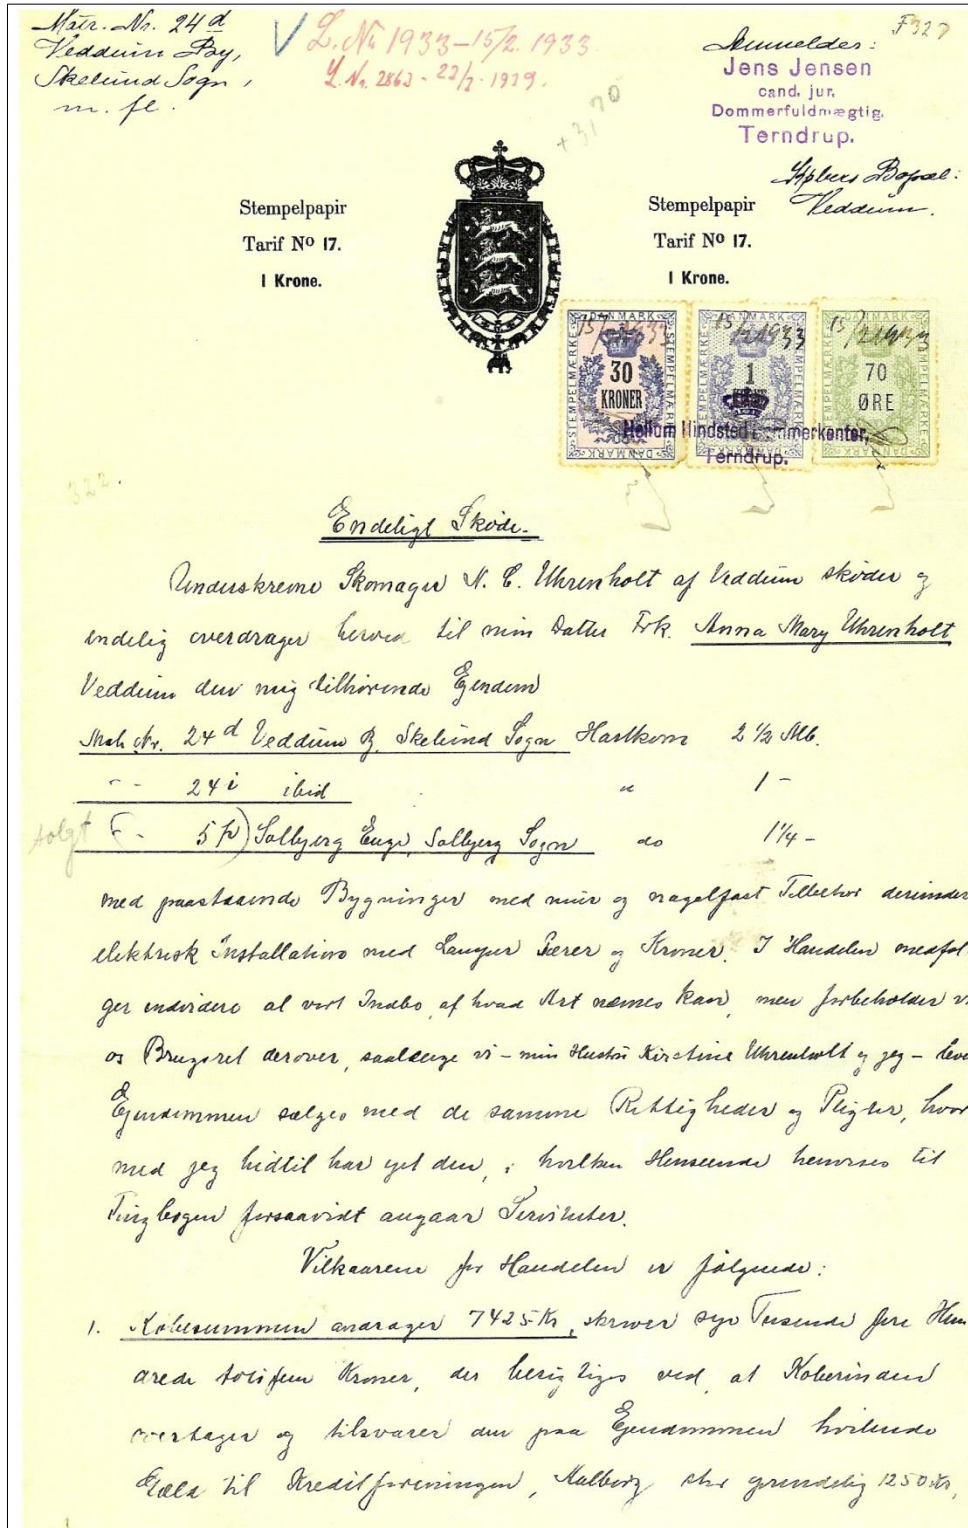 Matr. Nr. 24 d
Veddum By,
Skelund Sogn,
m. fl.
L. Nr 1933 - 15/2. 1933
L. Nr. 2863 -
F327
Anmelder:
Jens Jensen
cand. jur.
Dommerfuldmægtig.
Terndrup.
Købers Bopæl:
Veddum.
+ 31,70
Stempelpapir
Tarif No 17.
1 Krone.
Stempelpapir
Tarif No 17.
1 Krone.
DANMARK
STEMPELMÆRKE
30
KRONER
DANMARK
STEMPELMÆRKE
1
DANMARK
STEMPELMÆRKE
70
ØRE
15/2 1933
15/2 1933
15/2 1933
Hellum Hindsted Dommerkontor,
Terndrup.
322.
Endeligt Skøde.
Underskrevne Skomager N. C. Uhrenholt af Veddum skøder og
endelig overdrager herved til min Datter Frk. Anna Mary Uhrenholt
Veddum den mig tilhørende Ejendom
Matr. Nr. 24 d Veddum By, Skelund Sogn Hartkorn 2 1/2 Alb.
" - 24 i ibid " 1 -
solgt - 5 p) Solbjerg Enge, Solbjerg Sogn do 1 1/4 -
med paastaaende Bygninger med mur og nagelfast Tilbehør derunder
elektrisk Installation med Lamper Pærer og Kroner. I Handelen medføl-
ger endvidere al vort Indbo, af hvad Art nævnes kan, men forbeholder vi
os Brugsret derover, saalænge vi - min Hustru Kirstine Uhrenholt og jeg - leve
Ejendommen sælges med de samme Rettigheder og Pligter, hvor
med jeg hidtil har ejet den, i hvilken Henseende henvises til
Tingbogen forsaavidt angaar Servitutter.
Vilkaarene for Handelen er følgende:
1. Købesummen andrager 7425 Kr, skriver syv Tusende fire Hun
drede tyve fem Kroner, der berigtiges ved, at Køberinden
overtager og tilsvarer den paa Ejendommen hvilende
Gæld til Kreditforeningen, Aalborg stor oprindelig 1250 Kr,